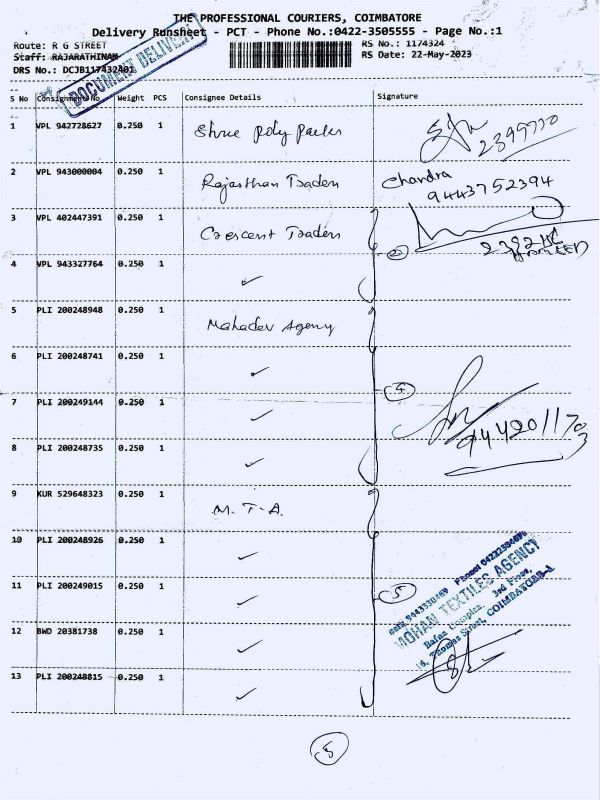 THE PROFESSIONAL COURIERS, COIMBATORE
Delivery Runsheet - PCT - Phone No.:0422-3505555 - Page No.:1
Route: R G STREET
RS No.: 1174324
Staff: RAJARATHINAM
RS Date: 22-May-2023
DRS No.: DCJB117432401
DOCUMENT DELIVERY
S No Consignment No Weight PCS Consignee Details Signature
1 VPL 942728627 0.250 1 Shree Poly Packs
2 VPL 943000004 0.250 1 Rajasthan Traders Chandra
9443752394
3 VPL 402447391 0.250 1 Crescent Traders
2
4 VPL 943327764 0.250 1 ✓
5 PLI 200248948 0.250 1 Mahadev Agency
6 PLI 200248741 0.250 1 ✓
4
7 PLI 200249144 0.250 1 ✓
8 PLI 200248735 0.250 1 ✓
9 KUR 529648323 0.250 1 M.T.A.
10 PLI 200248926 0.250 1 ✓
11 PLI 200249015 0.250 1 ✓
5
12 BWD 20381738 0.250 1 ✓
13 PLI 200248815 0.250 1 ✓
MOHAN TEXTILES AGENCY
Complex, 3rd Floor,
Thomas Street, COIMBATORE-1.
5